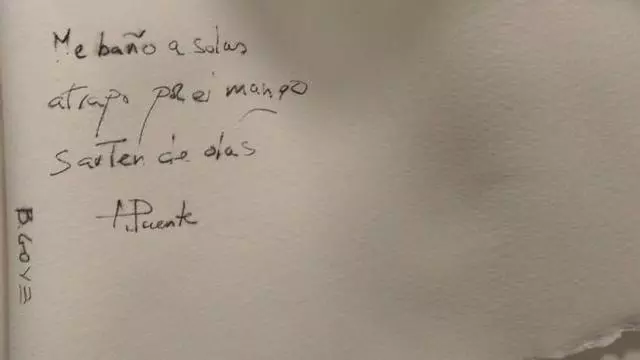 Me baño a solas
atrapo por el mango
sartén de olas
A. Puente